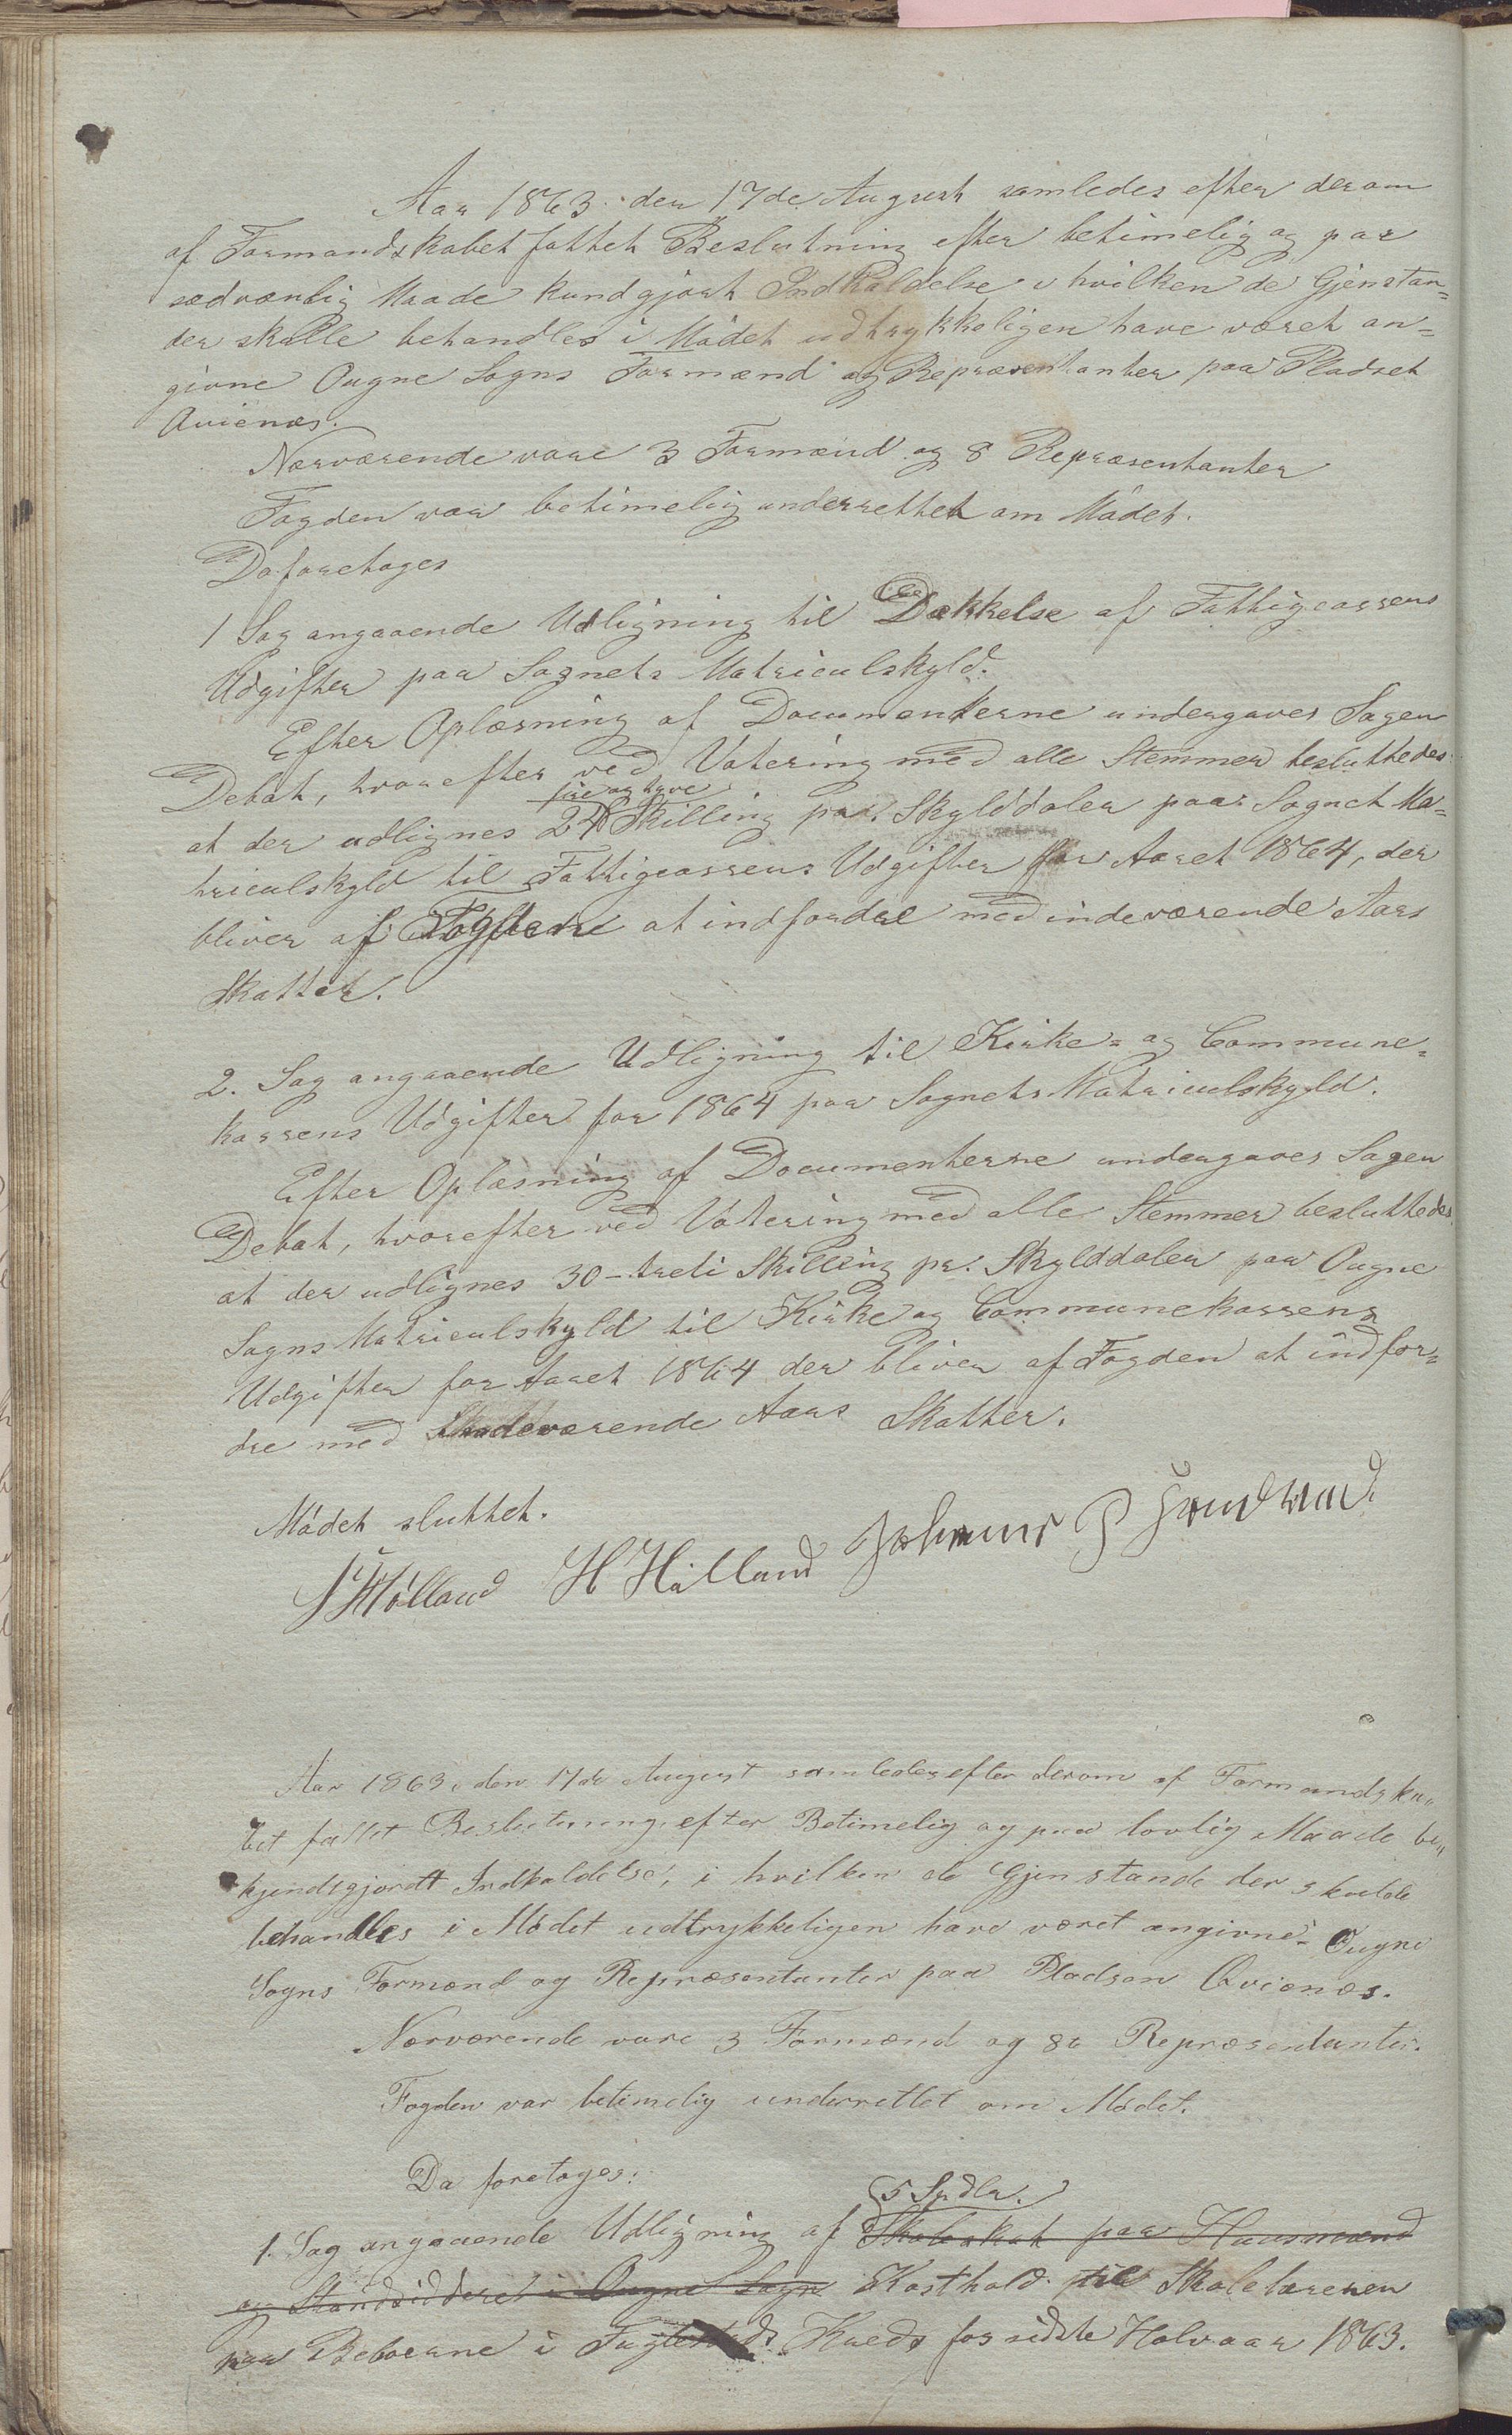 Aar 1863. den 17de August samledes efter derom
af Formandskabet fattet Beslutning efter betimelig og paa
sædvanlig Maade kundgjort Indkaldelse i hvilken de Gjenstan=
der skulle behandles i Mödet udtrykkeligen have været an=
givne Ougne Sogns Formænd og Repræsentanter paa Pladset
Qvienes.
Nærværende vare 3 Formænd og 8 Repræsentanter
Fogden var betimelig underrettet om Mödet.
Da foretoges
1 Sag angaaende Udligning til Dækkelse af Fattigcassens
Udgifter paa Sognets Matriculskyld.
Efter Oplæsning af Documenterne undergaves Sagen
Debat, hvorefter ved Votering med alle Stemmer besluttedes
fire og tyve
at der udlignes 24 Skilling pr. Skylddaler paa Sognet Ma=
triculskyld til Fattigcassens Udgifter for Aaret 1864, der
bliver af Fogden at indfordre med indeværende Aars
Skatter.
2. Sag angaaende Udligning til Kirke= og Commune=
kassens Udgifter for 1864 paa Sognets Matriculskyld.
Efter Oplæsning af Documenterne undergaves Sagen
Debat, hvorefter ved Votering med alle Stemmer besluttedes
at der udlignes 30 - tredi Skilling pr. Skylddaler paa Ougne
Sogns Matriculskyld til Kirke og Communekassens
Udgifter for Aaret 1864 der bliver af Fogden at indfor=
dre med indeværende Aars Skatter.
Mödet sluttet.
Hölland H Hölland Johannes P
Aar 1863, den 17de August samledes efter derom af Formandska=
bet fattet Beslutning, efter Betimelig og paa lovlig Maade be=
kjendtgjordt Indkaldelse, i hvilken de Gjenstande der skulde
behandles i Mödet udtrykkeligen have været angivne - Ougne
Sogns Formænd og Repræsentanter paa Pladsen Qvienes.
Nærværende vare 3 Formænd og 8 Repræsentanter.
Fogden var betimelig underrettet om Mödet.
Da foretoges:
5 Spdlr.
1. Sag angaaende Udligning af Skoleskat paa Huusmænd
og Strandsiddere i Ougne Sogn Kosthold til Skolelæreren
paa Beboerne i Kreds for sidste Halvaar 1863.